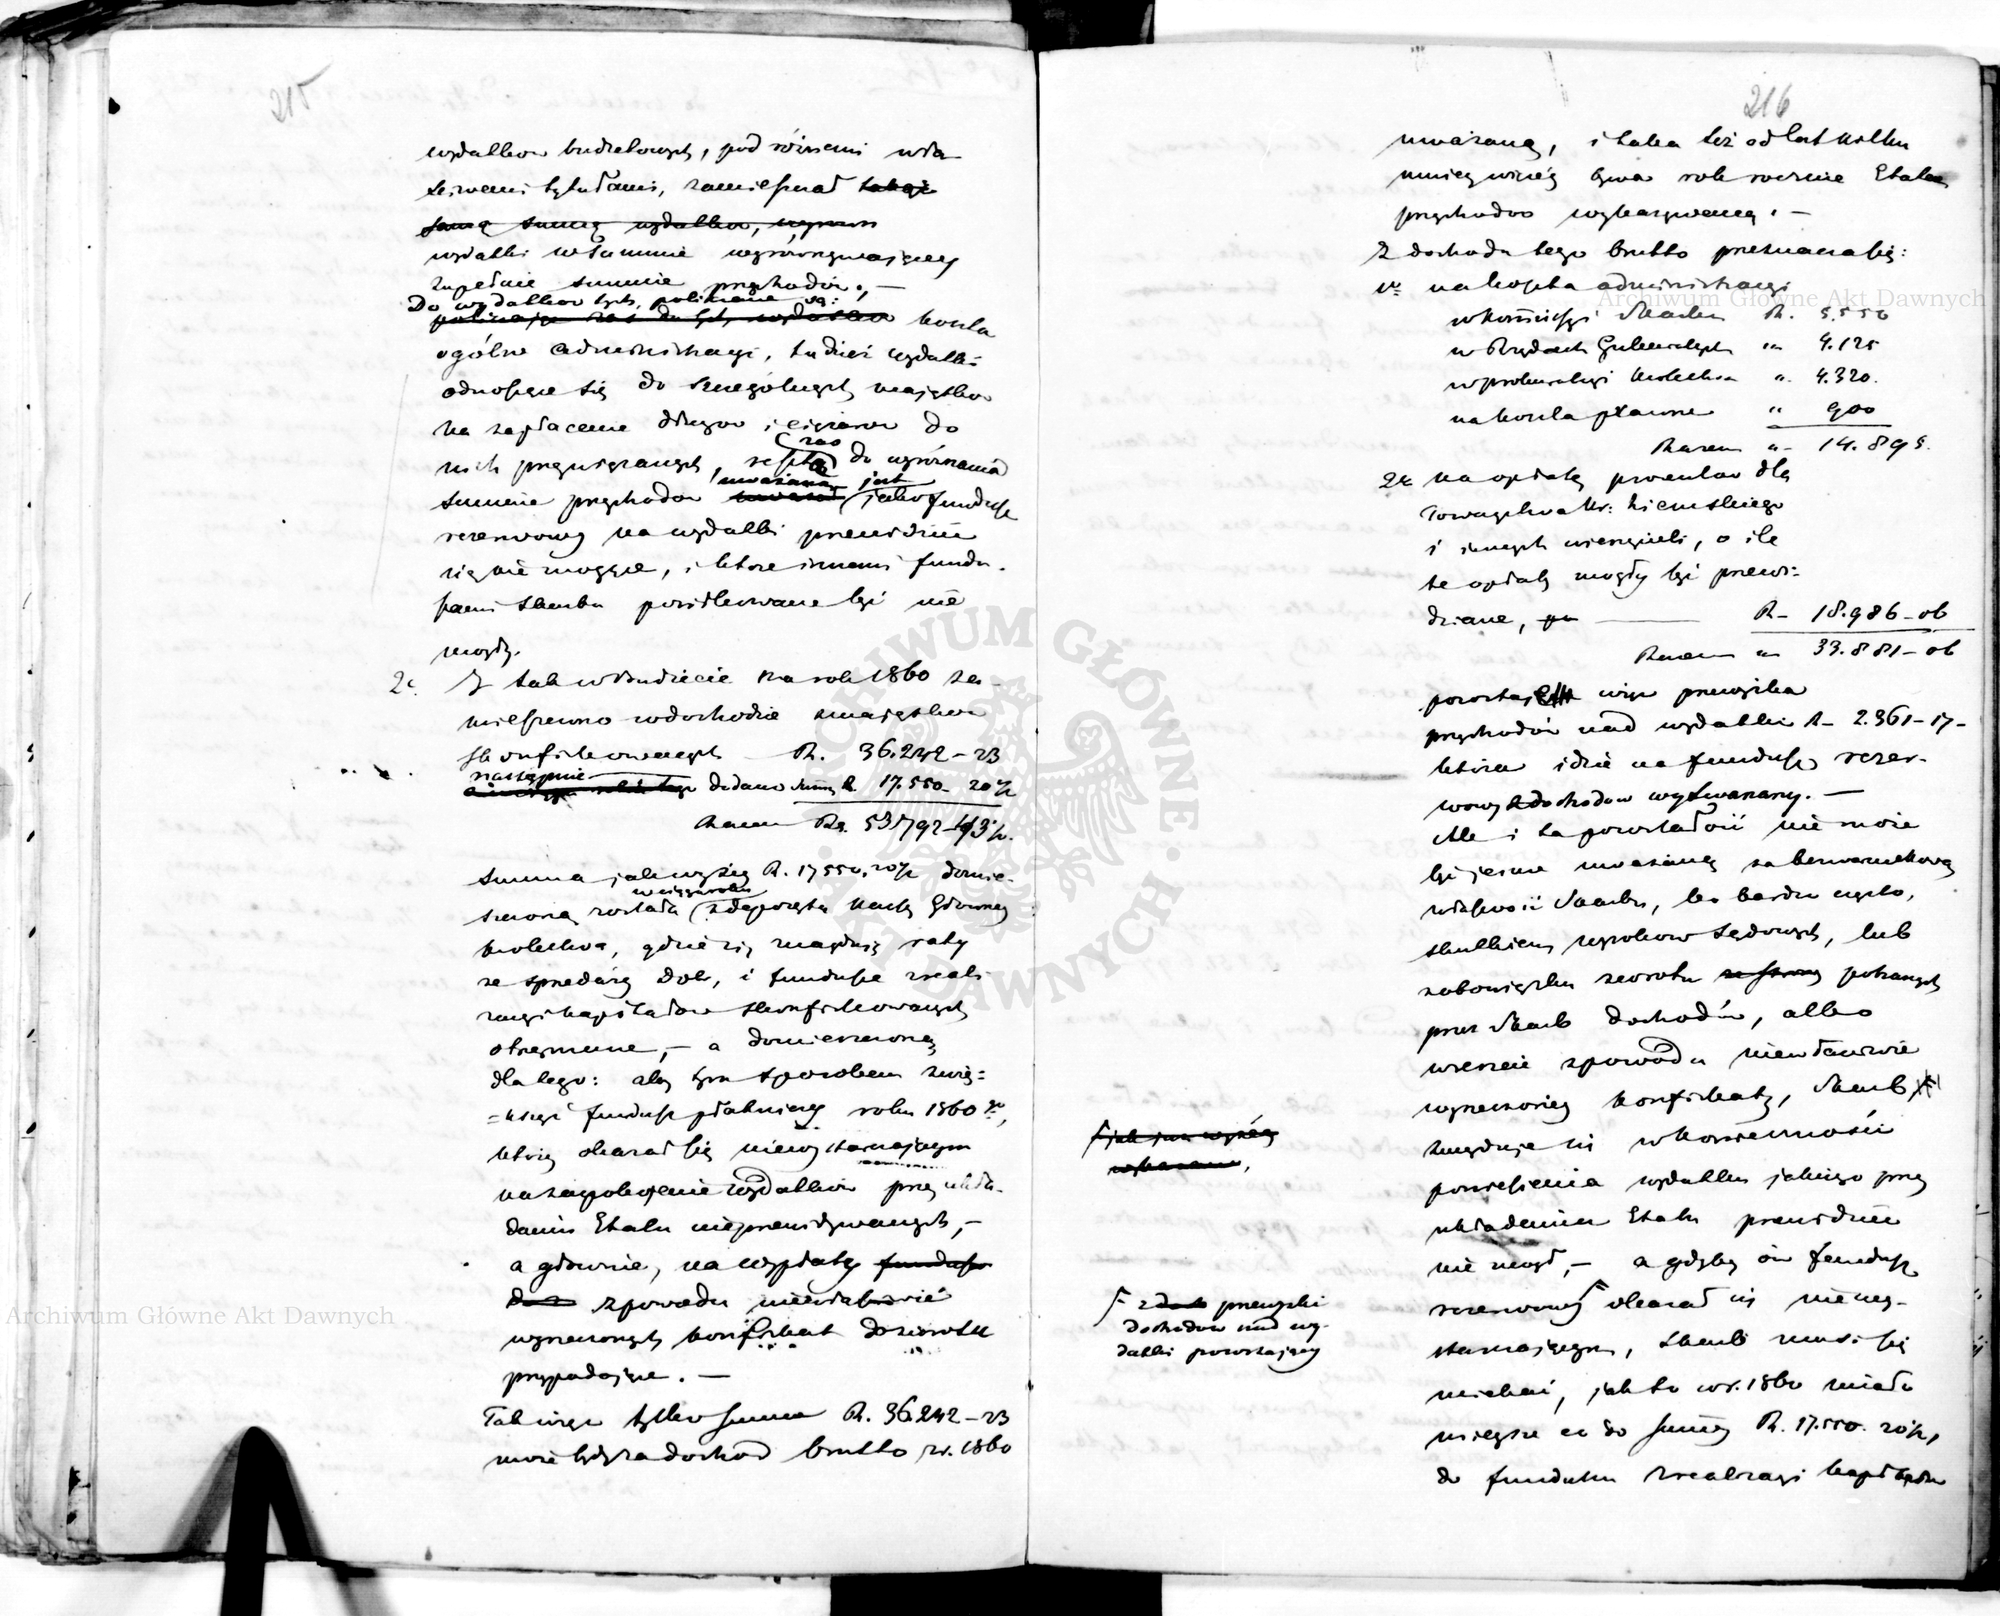 215
wydatków budżetowych, pod różnemi wła-
ściwemi tytułami, zamieszczał takąż
samą summę wydatków, wyrown
wydatki w summie wyrównywającej
zupełnie summie przychodów. —
Do wydatków tych, policzone są:
policzając zaś do tych wydatków koszta
ogólne administracyi, tudzież wydatki
odnoszące się do szczególnych majątków
na zapłacenie długów i ciężarów do
nich przywiązanych, resztą zaś do wyrównania
summie przychodów uważał uważaną jest jako fundusz
rezerwowy na wydatki przewidzieć
się nie mogące, i które innemi fundu-
szami Skarbu posiłkowane być nie
mogły.
2. I tak w Budżecie na rok 1860 za-
mieszczono w dochodzie z majątków
skonfiskowanych R. 36.242 – 23
następnie dodano summę R. 17.550 – 20½
Razem Rs. 53792 – 43½.
Summa jak wyżej R. 17550.20½ domie-
szczoną została w ciągu roku z depozytu Kassy Głównej
Królestwa, gdzie się znajdują raty
ze sprzedaży dóbr, i fundusze z reali-
zacyi kapitałów skonfiskowanych
otrzymane, – a domieszczoną
dlatego: aby tym sposobem zwię=
=kszyć fundusz płatniczy roku 1860 go,
który okazał się niewystarczającym
na zaspokojenie wydatków przy ukła-
daniu Etatu nieprzewidywanych, –
a głównie, na wypłaty fundusz
z powodu niewłaściwie
wyrzeczonych konfiskat do zwrotu
przypadające. —
Tak więc tylko summa R. 36.242 – 23
może być za dochód brutto r. 1860
216
uważaną, i taka też od lat kilku
mniej więcej bywa rok rocznie Etatem
przychodów wykazywaną. –
Z dochodu tego brutto przeznacza się:
1o na koszta administracyi
w Kommissyi Skarbu R. 5.550
w Rządach Gubernialnych „ 4.125
w prokuratoryi Królestwa „ 4.320.
na koszta prawne „ 900
Razem „ 14.895.
2e na opłatę procentów dla
Towarzystwa Kr: Ziemskiego
i innych wierzycieli, o ile
te opłaty mogły być przewi-
dziane, R – 18.986 – 06
Razem „ 33.881 – 06
powstaje więc przewyżka
przychodów nad wydatki R – 2.361 – 17 –
która idzie na fundusz rezer-
wowy z dochodów wytwarzany. —
Ale i ta pozostałość nie może
być jeszcze uważaną za bezwarunkową
własność Skarbu, bo bardzo często,
skutkiem wyroków Sądowych, lub
obowiązku zwrotu ze strony pobranych
przez Skarb dochodów, albo
wreszcie z powodu niewłaściwie
wyrzeczonej konfiskaty, Skarb
znajduje się w konieczności
poniesienia wydatku jakiego przy
układaniu Etatu przewidzieć
nie mógł, – a gdyby ów fundusz
rezerwowy Γ okazał się niewy-
starczającym, Skarb musi się
uciekać, jak to w r. 1860 miało
miejsce co do summy R. 17.550. 20½,
do funduszu z realizacyi kapitałów
Γ jak już wyżej
wykazano,
Γ z przewyżki
dochodów nad wy-
datki powstający
Archiwum Główne Akt Dawnych
Archiwum Główne Akt Dawnych
ARCHIWUM GŁÓWNE AKT DAWNYCH